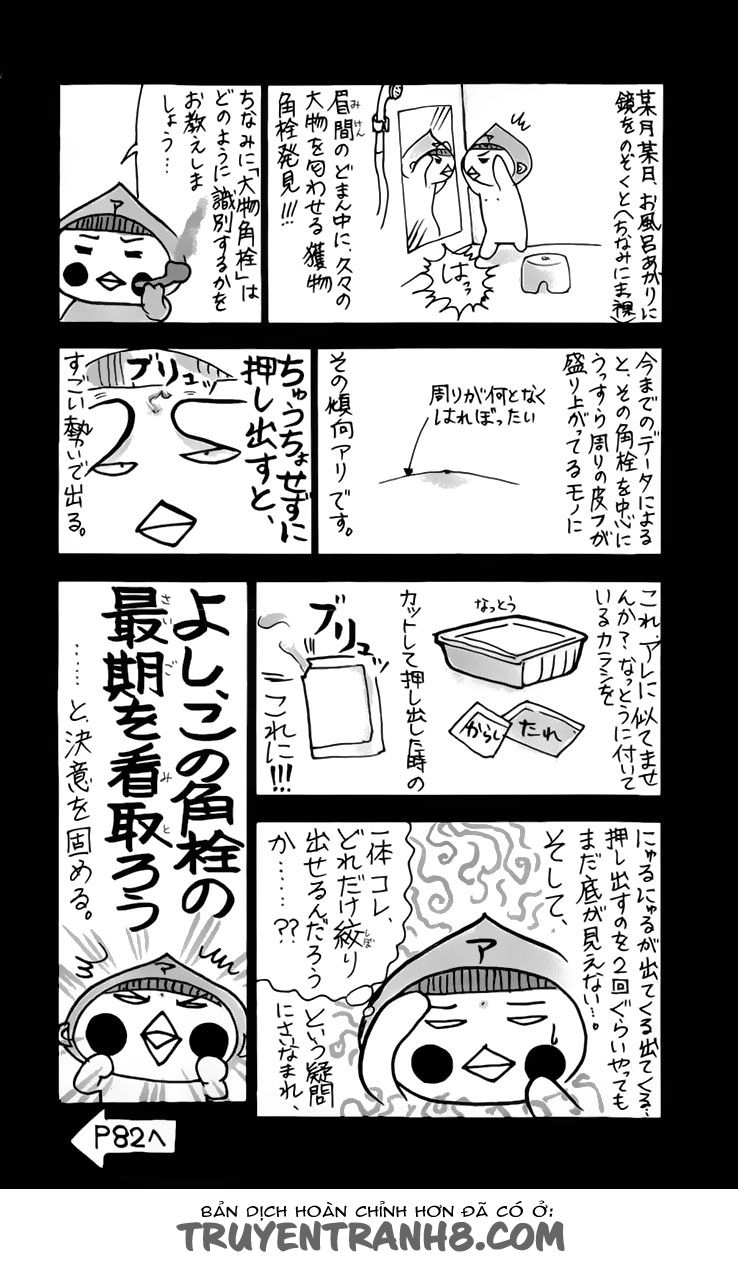 某月某日、お風呂あがりに
鏡をのぞくと(ちなみに裸)
はっ
眉間のどまん中に、久々の
みけん
大物を匂わせる獲物
角栓発見!!!
ちなみに「大物角栓」は
どのように識別するかを
お教えしま
しょう…
ア
今までのデータによる
と、その角栓を中心に
うっすら周りの皮フが
盛り上がってるモノに
周りが何となく
はれぼったい
その傾向アリです。
ちゅうちょせずに
押し出すと、
ブリュッ
すごい勢いで出る。
これ、アレに似てませ
んか?なっとうに付いて
いるカラシを
なっとう
からし
たれ
カットして押し出した時の
ブリュッ
これに!!!
にゅるにゅるが出てくる出てくる…
押し出すのを2回ぐらいやっても
まだ底が見えない…。
そして、
一体コレ、
どれだけ絞り
しぼ
出せるんだろう
か……??
という疑問
にさいなまれ、
ア
よし、この角栓の
最期を看取ろう
さいご
みと
……と、決意を固める。
ア
P82へ
BẢN DỊCH HOÀN CHỈNH HƠN ĐÃ CÓ Ở:
TRUYENTRANH8.COM